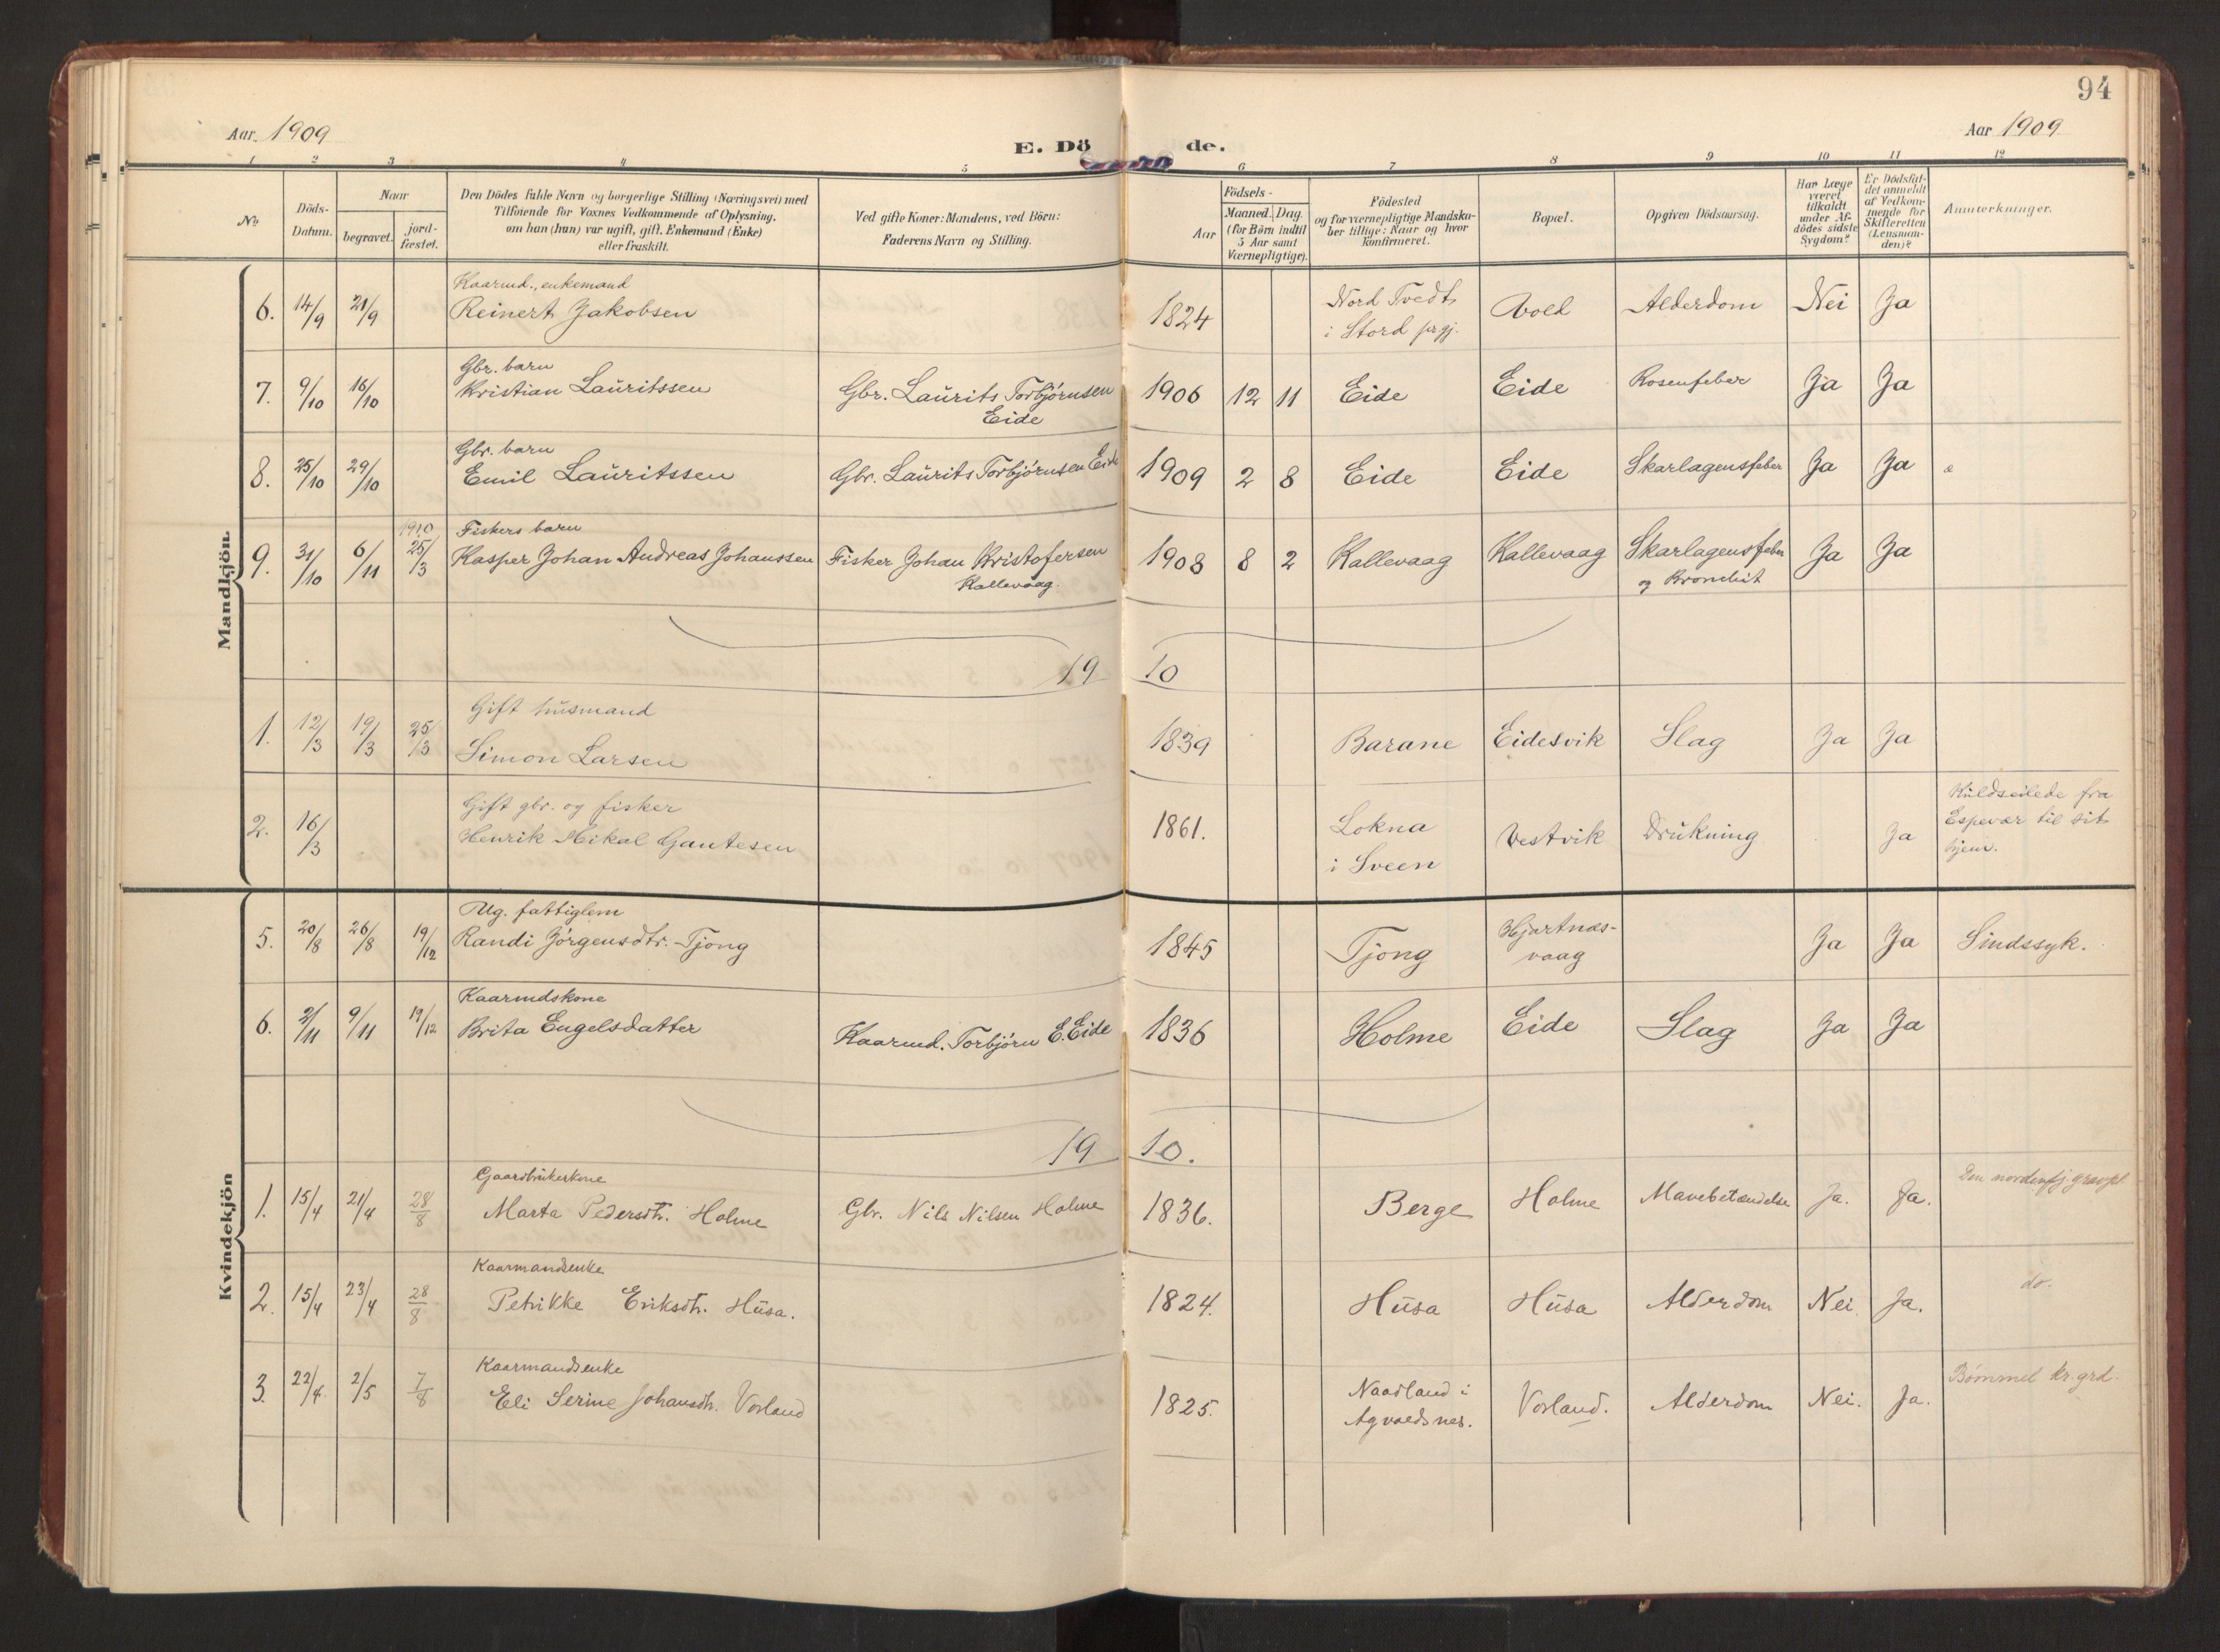 94
Aar. 1909
E. Dö de.
Aar 1909
1 2 3 4 5 6 7 8 9 10 11 12
No.
Döds-Datum.
Naar
begravet.
jord-fæstet.
Den Dödes fulde Navn og borgerlige Stilling (Næringsvei) med
Tilföiende for Voxnes Vedkommende af Oplysning,
om han (hun) var ugift, gift, Enkemand (Enke)
eller fraskilt.
Ved gifte Koner: Mandens, ved Börn:
Faderens Navn og Stilling.
Födsels-
Aar
Maaned. Dag.
(for Börn indtil
5 Aar samt
Værnepligtige).
Födested
og for værnepligtige Mandska-
ber tillige: Naar og hvor
konfirmeret.
Bopæl.
Opgiven Dödsaarsag.
Har Læge
været
tilkaldt
under Af-
dödes sidste
Sygdom?
Er Dödsfal-
det anmeldt
af Vedkom-
mende for
Skifteretten
(Lensman-
den)?
Anmærkninger.
Mandkjön.
Kaarmd., enkemand
6. 14/9 21/9 Reinert Jakobsen 1824 Nord Tvedt i Stord prgj. Vold Alderdom Nei Ja
Gbr. barn
7. 9/10 16/10 Kristian Lauritssen Gbr. Laurits Torbjørnsen Eide 1906 12 11 Eide Eide Rosenfeber Ja Ja
Gbr. barn
8. 25/10 29/10 Emil Lauritssen Gbr. Laurits Torbjørnsen Eide 1909 2 8 Eide Eide Skarlagensfeber Ja Ja
1910 Fiskers barn
9. 31/10 6/11 25/3 Kasper Johan Andreas Johanssen Fisker Johan Kristofersen Kallevaag. 1908 8 2 Kallevaag Kallevaag Skarlagensfeber og Bronchit Ja Ja
19 10
Gift husmand
1. 12/3 19/3 25/3 Simon Larsen 1839 Barane Eidesvik Slag Ja Ja
Gift gbr. og fisker
2. 16/3 Henrik Mikal Gautesen 1861. Lokna i Sveen Vestvik Drukning Ja Kuldseilede fra Espevær til sit hjem.
Kvindekjön
Ug. fattiglem
5. 20/8 26/8 19/12 Randi Jørgensdtr. Tjong 1845 Tjong Hjartnæs-vaag Ja Ja Sindssyk.
Kaarmdskone
6. 2/11 9/11 19/12 Brita Engelsdatter Kaarmd. Torbjørn E. Eide 1836 Holme Eide Slag Ja Ja
19 10.
Gaardbrukerkone
1. 15/4 21/4 28/8 Marta Pedersdtr. Holme Gbr. Nils Nilsen Holme 1836. Berge Holme Mavebetændelse Ja. Ja. Den nordenfj. gravpl.
Kaarmandsenke
2. 15/4 23/4 28/8 Petrikke Eriksdtr. Husa. 1824. Husa Husa Alderdom Nei. Ja. do.
Kaarmandsenke
3. 22/4. 2/5 7/8 Eli Serine Johansdtr. Vorland 1825. Naadland i Agvaldsnes. Vorland. Alderdom Nei. Ja. Bømmel kr.grd.